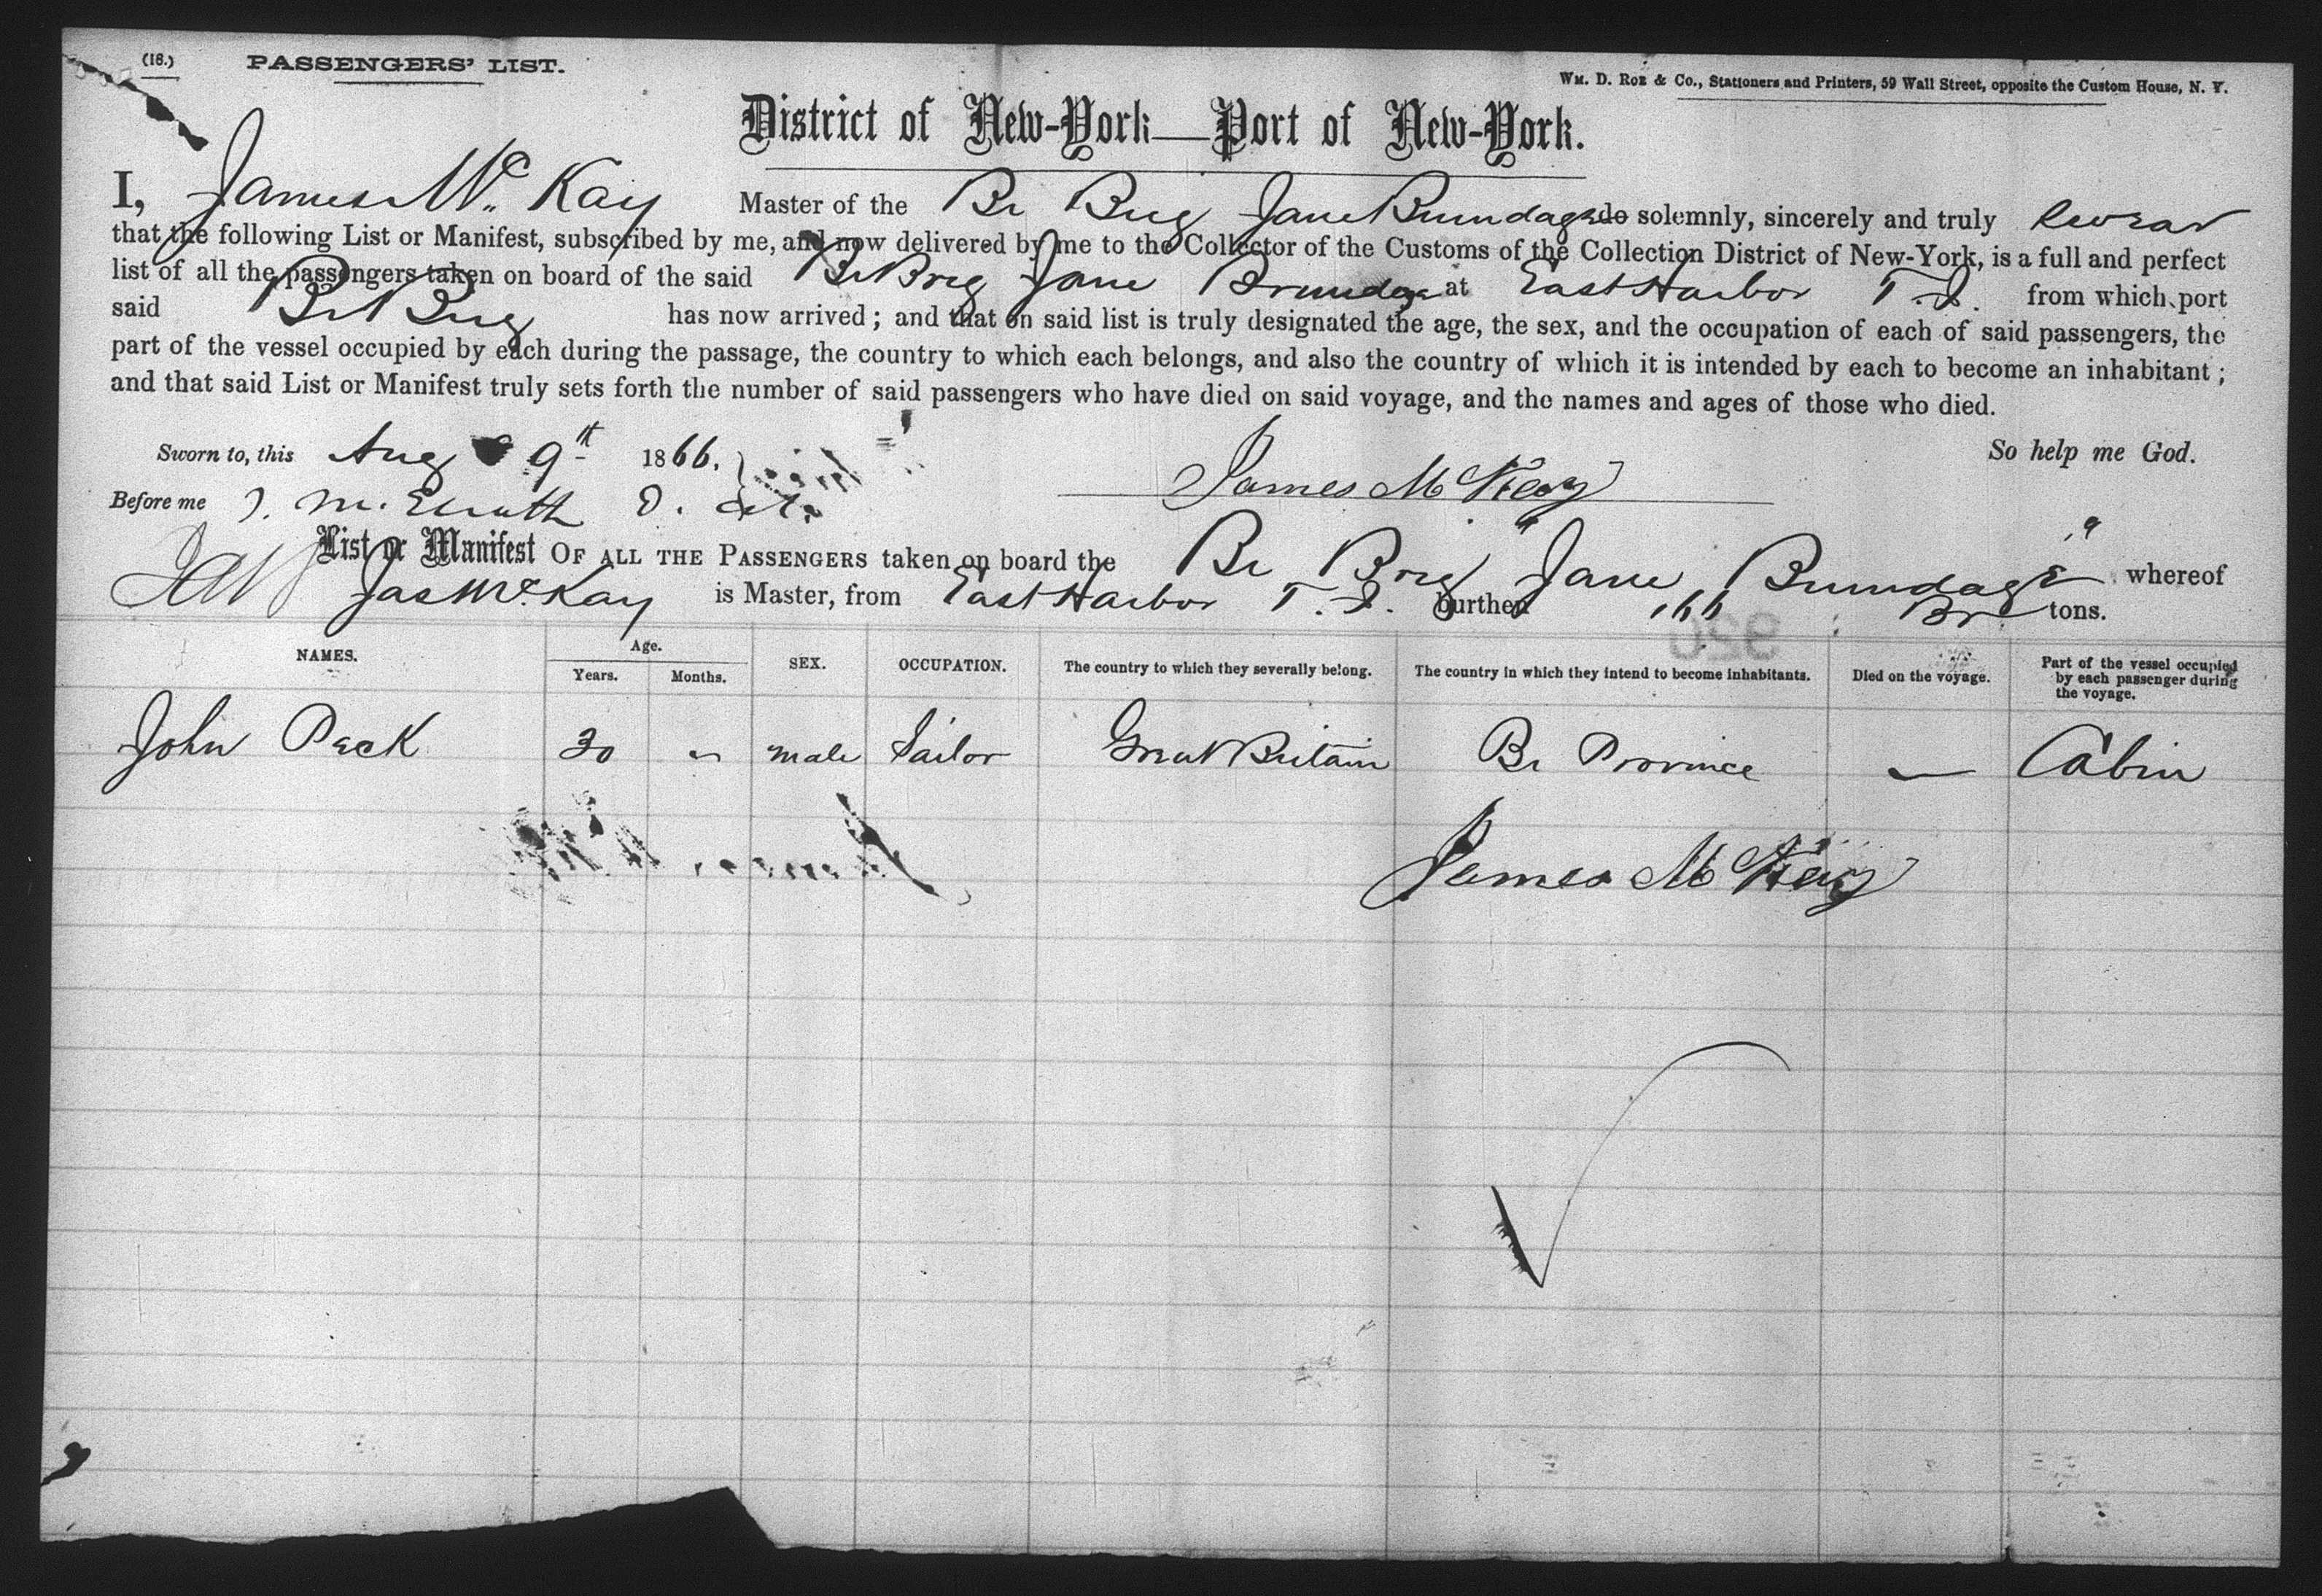 (18.) PASSENGERS' LIST.
WM. D. ROE & Co., Stationers and Printers, 59 Wall Street, opposite the Custom House, N. Y.
District of New-York—Port of New-York.
I, James Mc Kay Master of the Br Brig Jane Brundage do solemnly, sincerely and truly swear
that the following List or Manifest, subscribed by me, and now delivered by me to the Collector of the Customs of the Collection District of New-York, is a full and perfect
list of all the passengers taken on board of the said Br Brig Jane Brundage at East Harbor T. I. from which port
said Br Brig has now arrived; and that on said list is truly designated the age, the sex, and the occupation of each of said passengers, the
part of the vessel occupied by each during the passage, the country to which each belongs, and also the country of which it is intended by each to become an inhabitant;
and that said List or Manifest truly sets forth the number of said passengers who have died on said voyage, and the names and ages of those who died.
Sworn to, this Aug 9th 1866. So help me God.
Before me James McKay
List or Manifest OF ALL THE PASSENGERS taken on board the Br Brig "Jane Brundage" whereof
Jas Mc Kay is Master, from East Harbor T. I. burthen 166 tons.
NAMES. Age. Years. Months. SEX. OCCUPATION. The country to which they severally belong. The country in which they intend to become inhabitants. Died on the voyage. Part of the vessel occupied by each passenger during the voyage.
John Peck 30 " male Sailor Great Britain Br Province — Cabin
James McKay